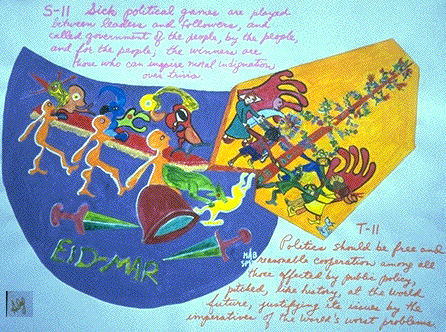 S-11 Sick political games are played
between leaders and followers, and
called government of the people, by the people,
and for the people; the winners are
those who can inspire moral indignation
over trivia.
EID-MAR
T-11
Politics should be free and
reasonable cooperation among all
those affected by public policy,
pitched, like history, at the world
future, justifying its issues by the
imperatives of the world's worst problems.